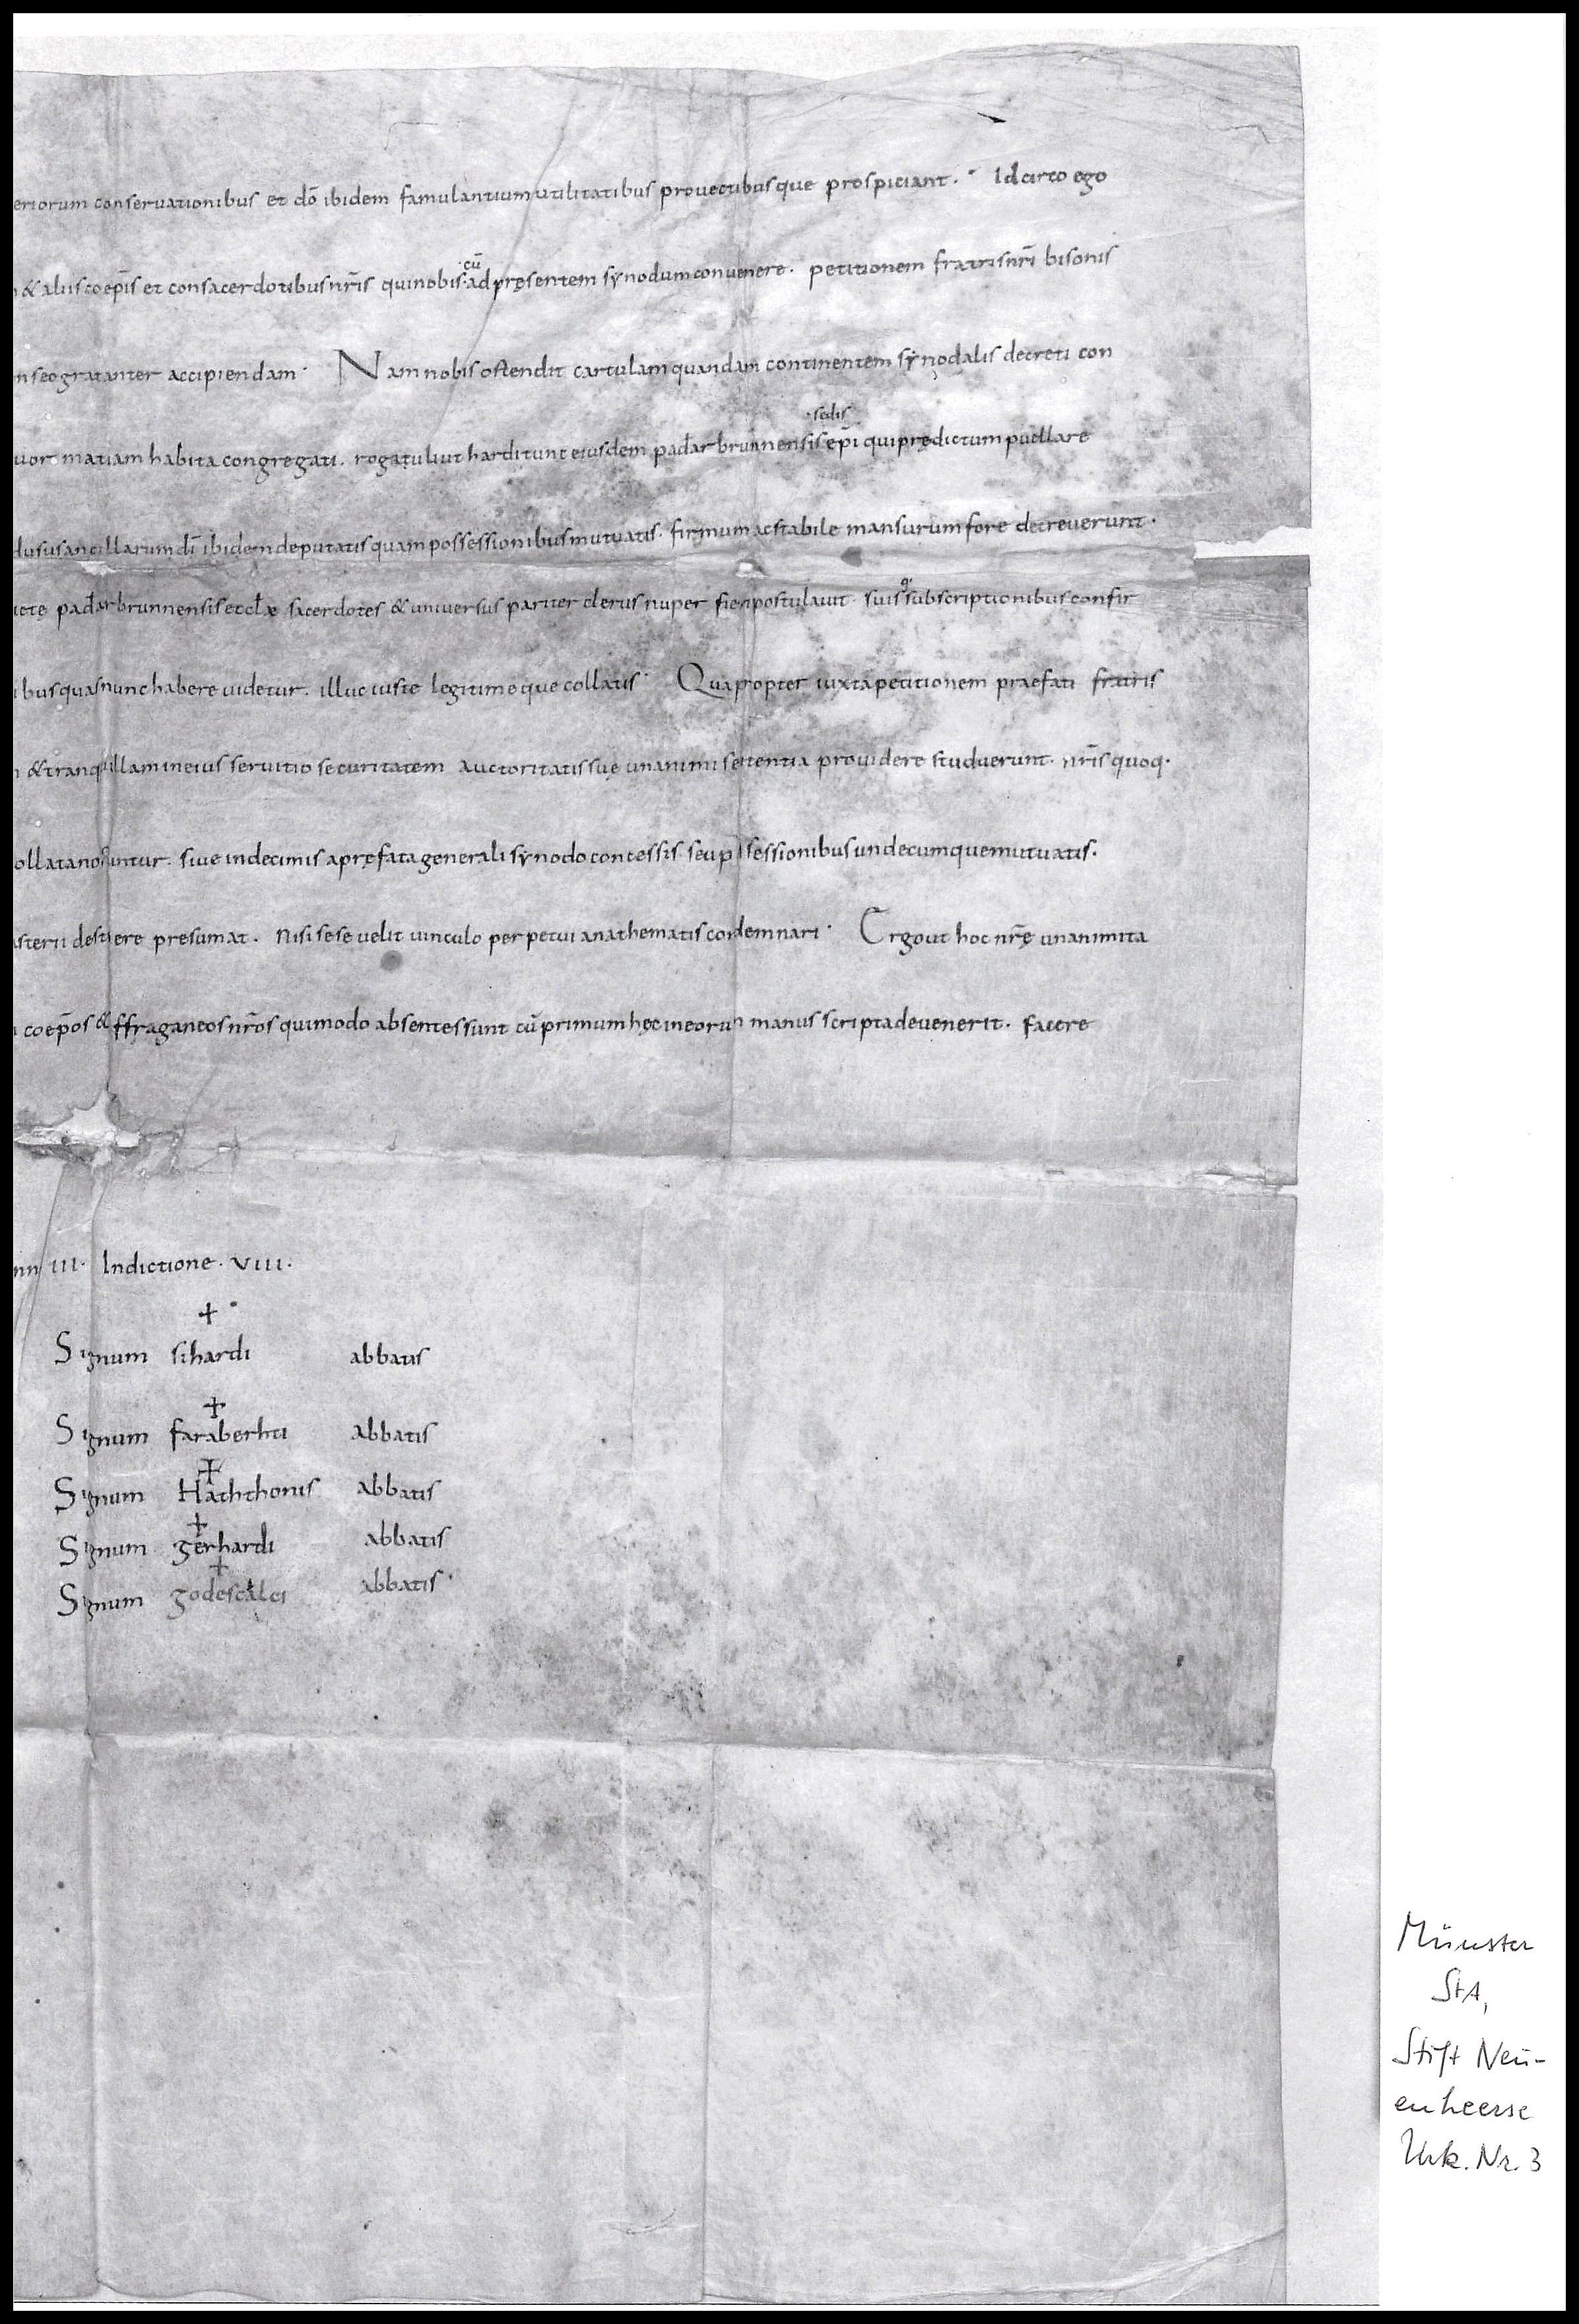 eriorum conservationibus et dō ibidem famulantium utilitatibus provectibusque prospiciant. Idcirco ego
& aliis coepīs et consacerdotibus nr̄is qui nobis cū ad pręsentem synodum convenere. petitionem fratris nr̄i bisonis
gratanter accipiendam. Nam nobis ostendit cartulam quandam continentem synodalis decreti con
uor matiam habita congregati. rogatu liuthardi tunc eiusdem pađarbrunnensis sedis ep̄i qui prędictum puellare
usus ancillarum dī ibidem deputatis quam possessionibus mutuatis. firmum ac stabile mansurum fore decreverunt.
pađarbrunnensis sacerdotes & universus pariter clerus nuper fieri postulavit. suisq; subscriptionibus confir
ibus quas nunc habere videtur. illuc iuste legitimeque collatis. Quapropter iuxta petitionem praefati fratris
& tranquillam in eius servitio securitatem auctoritatis suę unanimi sententia providere studuerunt. nr̄is quoq.
ollata noscuntur. sive in decimis a pręfata generali synodo concessis. seu possessionibus undecumque mutuatis.
asterii presumat. nisi sese velit vinculo perpetui anathematis condemnari. Ergo ut hoc nr̄ę unanimita
coep̄os & suffraganeos nr̄os qui modo absentes sunt cū primum hęc in eorum manus scripta devenerit. facere
III. Indictione. VIII.
+
Signum sihardi abbatis
+
Signum faraberhti abbatis
+
Signum Haththonis abbatis
+
Signum gerhardi abbatis
+
Signum godescalci abbatis.
Münster
StA,
Stift Neu-
enheerse
Urk. Nr. 3